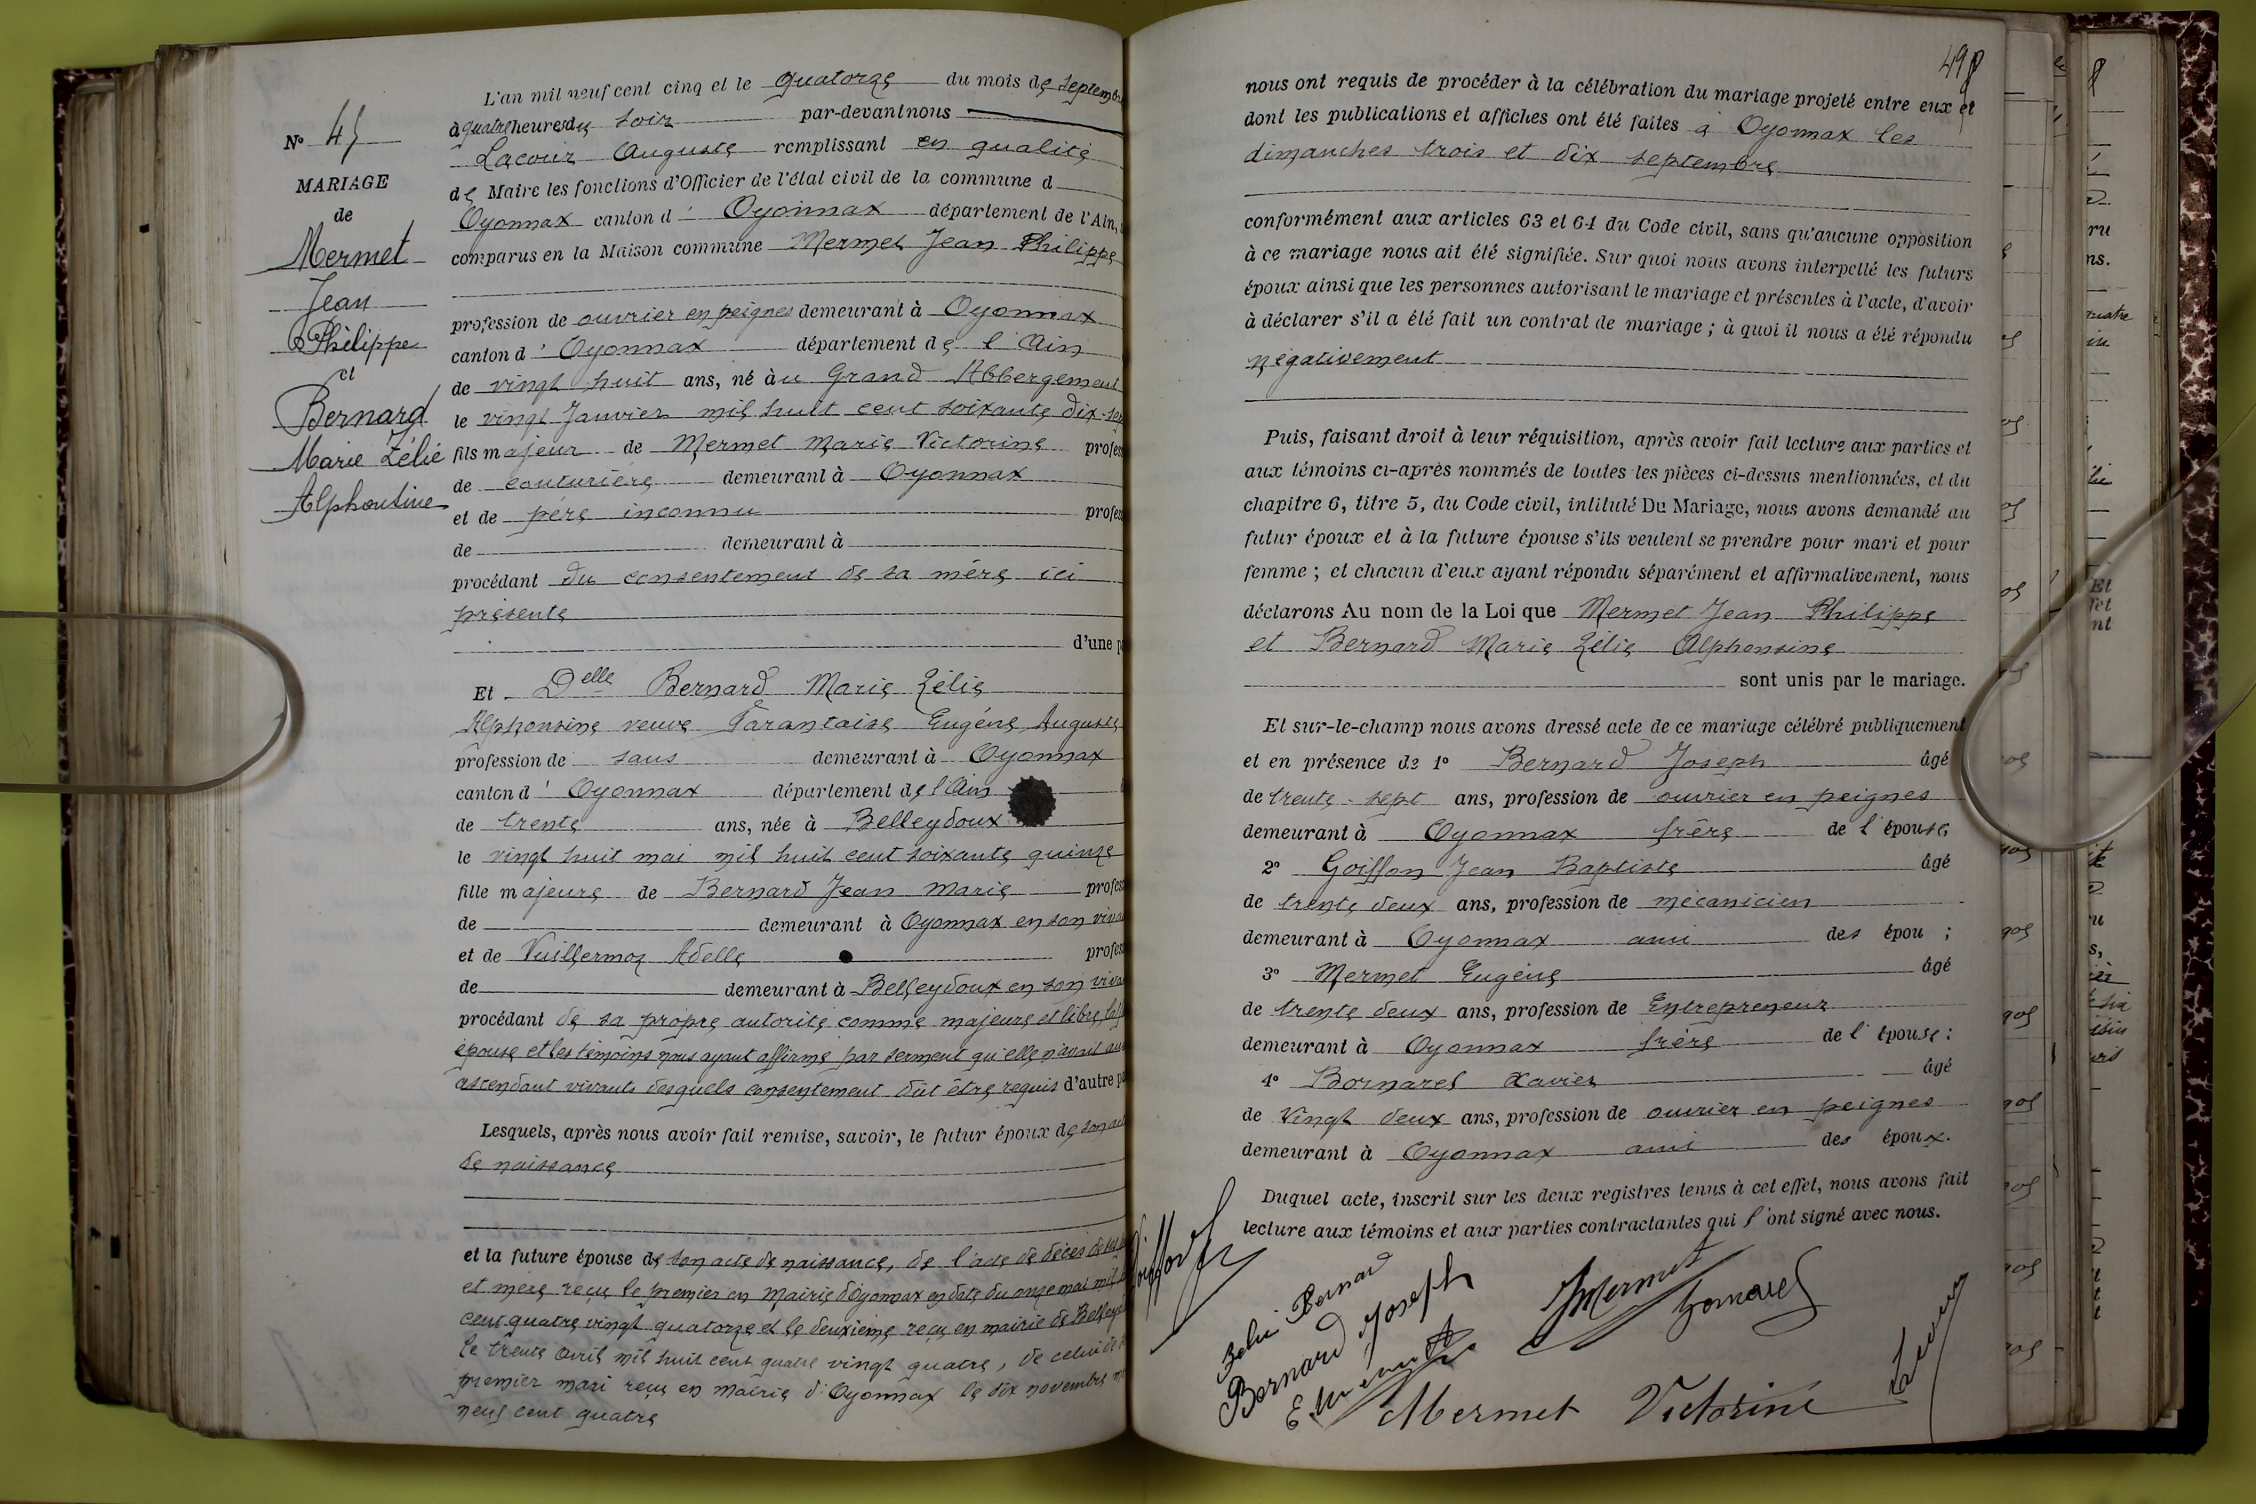 N° 45
MARIAGE
de
Mermet
Jean
Philippe
et
Bernard
Marie Zélie
Alphonsine
L'an mil neuf cent cinq et le quatorze du mois de septembre
à quatre heures du soir par-devant nous
Lacour Auguste remplissant en qualité
de Maire les fonctions d'Officier de l'état civil de la commune d
Oyonnax canton d' Oyonnax département de l'Ain,
comparus en la Maison commune Mermet Jean Philippe
profession de ouvrier en peignes demeurant à Oyonnax
canton d' Oyonnax département de l'Ain
de vingt huit ans, né au Grand Abbergement
le vingt Janvier mil huit cent soixante dix-sep
fils majeur de Mermet Marie Victorine profes
de couturière demeurant à Oyonnax
et de père inconnu profes
de demeurant à
procédant du consentement de sa mère ici
présente
d'une pa
Et Delle Bernard Marie Zélie
Alphonsine veuve Tarantaise Eugène Auguste
profession de sans demeurant à Oyonnax
canton d' Oyonnax département de l'Ain
de trente ans, née à Belleydoux
le vingt huit mai mil huit cent soixante quinze
fille majeure de Bernard Jean Marie profes
de demeurant à Oyonnax en son viva
et de Vuillermoz Adelle profes
de demeurant à Belleydoux en son viva
procédant de sa propre autorité comme majeure et libre, la f
épouse et les témoins nous ayant affirmé par serment qu'elle n'avait au
ascendant vivants desquels consentement dût être requis d'autre pa
Lesquels, après nous avoir fait remise, savoir, le futur époux de son act
de naissance
et la future épouse de son acte de naissance, de l'acte de décès de ses
et mère reçu le premier en Mairie d'Oyonnax en date du onze mai mil
cent quatre vingt quatorze et le deuxième reçu en mairie de Belleyd
le trente avril mil huit cent quatre vingt quatre, de celui de
premier mari reçu en Mairie d'Oyonnax le dix novembre m
neuf cent quatre
498
nous ont requis de procéder à la célébration du mariage projeté entre eux et
dont les publications et affiches ont été faites à Oyonnax les
dimanches trois et dix septembre
conformément aux articles 63 et 64 du Code civil, sans qu'aucune opposition
à ce mariage nous ait été signifiée. Sur quoi nous avons interpellé les futurs
époux ainsi que les personnes autorisant le mariage et présentes à l'acte, d'avoir
à déclarer s'il a été fait un contrat de mariage ; à quoi il nous a été répondu
négativement
Puis, faisant droit à leur réquisition, après avoir fait lecture aux parties et
aux témoins ci-après nommés de toutes les pièces ci-dessus mentionnées, et du
chapitre 6, titre 5, du Code civil, intitulé Du Mariage, nous avons demandé au
futur époux et à la future épouse s'ils veulent se prendre pour mari et pour
femme ; et chacun d'eux ayant répondu séparément et affirmativement, nous
déclarons Au nom de la Loi que Mermet Jean Philippe
et Bernard Marie Zélie Alphonsine
sont unis par le mariage.
Et sur-le-champ nous avons dressé acte de ce mariage célébré publiquement
et en présence de 1° Bernard Joseph âgé
de trente-sept ans, profession de ouvrier en peignes
demeurant à Oyonnax frère de l'épouse,
2° Goiffon Jean Baptiste âgé
de trente deux ans, profession de mécanicien
demeurant à Oyonnax ami des épou ;
3° Mermet Eugène âgé
de trente deux ans, profession de Entrepreneur
demeurant à Oyonnax frère de l'épouse :
4° Bornarel Xavier âgé
de vingt deux ans, profession de ouvrier en peignes
demeurant à Oyonnax ami des époux.
Duquel acte, inscrit sur les deux registres tenus à cet effet, nous avons fait
lecture aux témoins et aux parties contractantes qui l'ont signé avec nous.
Goiffon
Zelie Bernard
Bernard Joseph
E Mermet
JMermet
Bornarel
Mermet Victorine